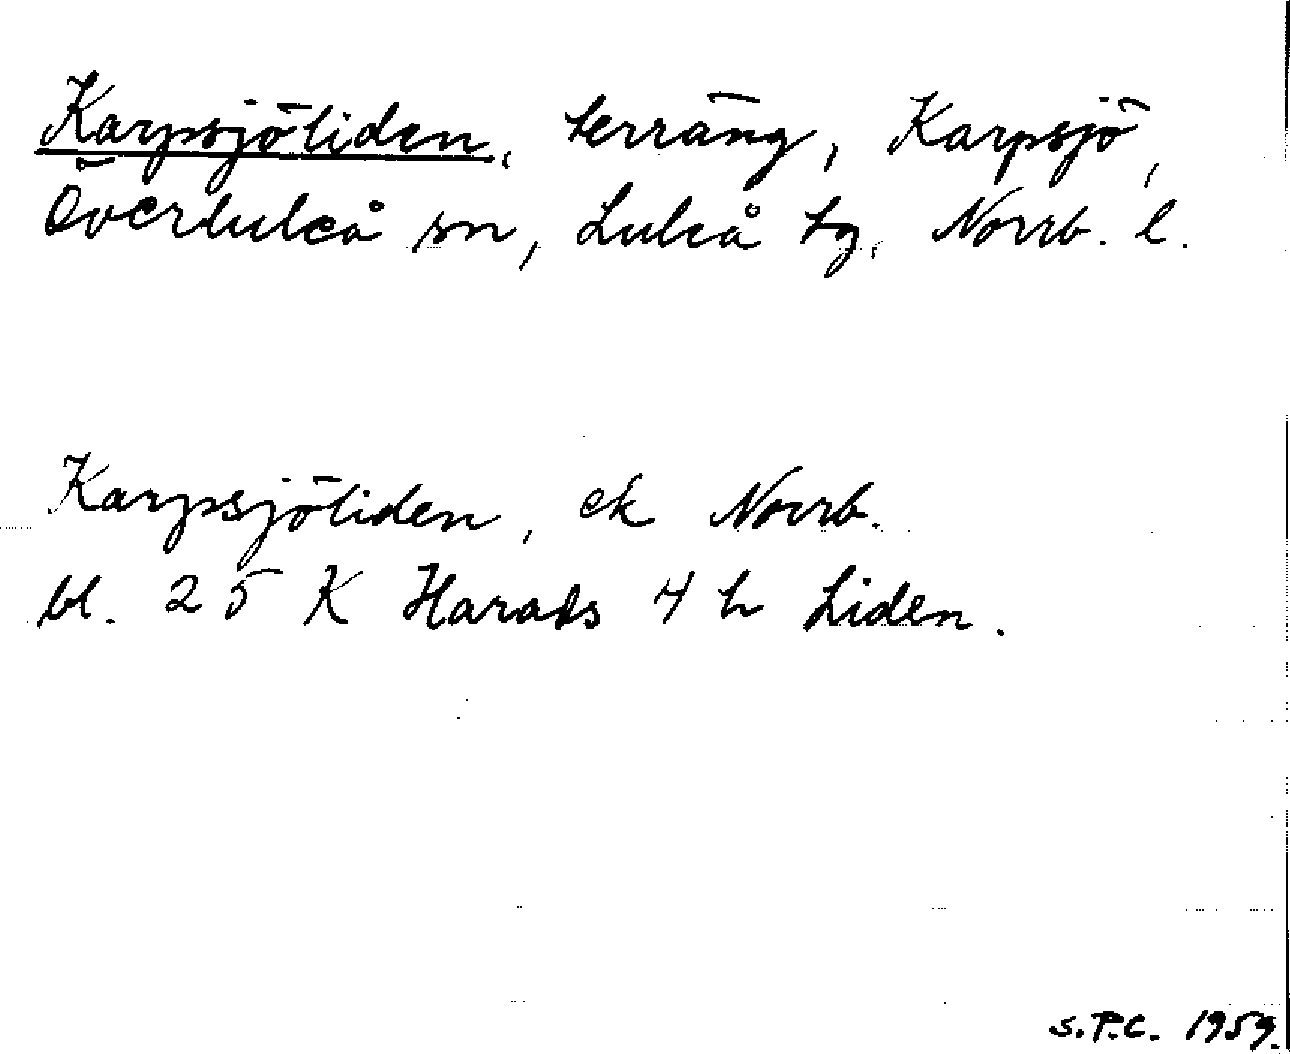 Karpsjöliden, terräng, Karpsjö,
Överluleå sn, Luleå tg, Norrb. l.
Karpsjöliden, ek Norrb.
bl. 25 K Harads 4 h Liden.
S.P.C. 1959.